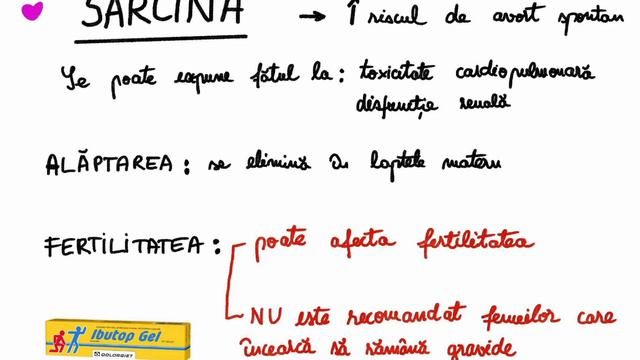 SARCINA → ↑ riscul de avort spontan
Se poate expune fătul la : toxicitate cardiopulmonară
disfuncție renală
ALĂPTAREA : se elimină în laptele matern
FERTILITATEA : poate afecta fertilitatea
NU este recomandat femeilor care
încearcă să rămână gravide
Ibutop Gel
DOLORGIET